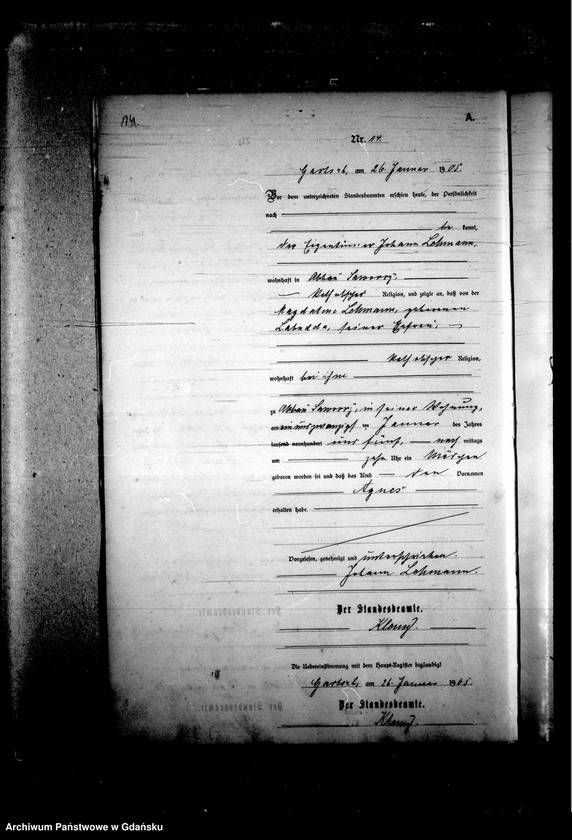 14.
A.
Nr. 14.
Gartsch, am 26. Januar 1905.
Vor dem unterzeichneten Standesbeamten erschien heute, der Persönlichkeit
nach
be kannt,
der Eigentümer Johann Lehmann,
wohnhaft in Abbau
katholischer Religion, und zeigte an, daß von der
Magdalena Lehmann, geborenen
Labudda, seiner Ehefrau,
katholischer Religion,
wohnhaft bei ihm
zu Abbau in seiner Wohnung,
am ein und zwanzigsten Januar des Jahres
tausend neunhundert und fünf, nach mittags
um zehn Uhr ein Mädchen
geboren worden sei und daß das Kind den Vornamen
Agnes
erhalten habe.
Vorgelesen, genehmigt und unterschrieben.
Johann Lehmann.
Der Standesbeamte.
Die Uebereinstimmung mit dem Haupt-Register beglaubigt
Gartsch, am 26. Januar 1905.
Der Standesbeamte.
Archiwum Państwowe w Gdańsku